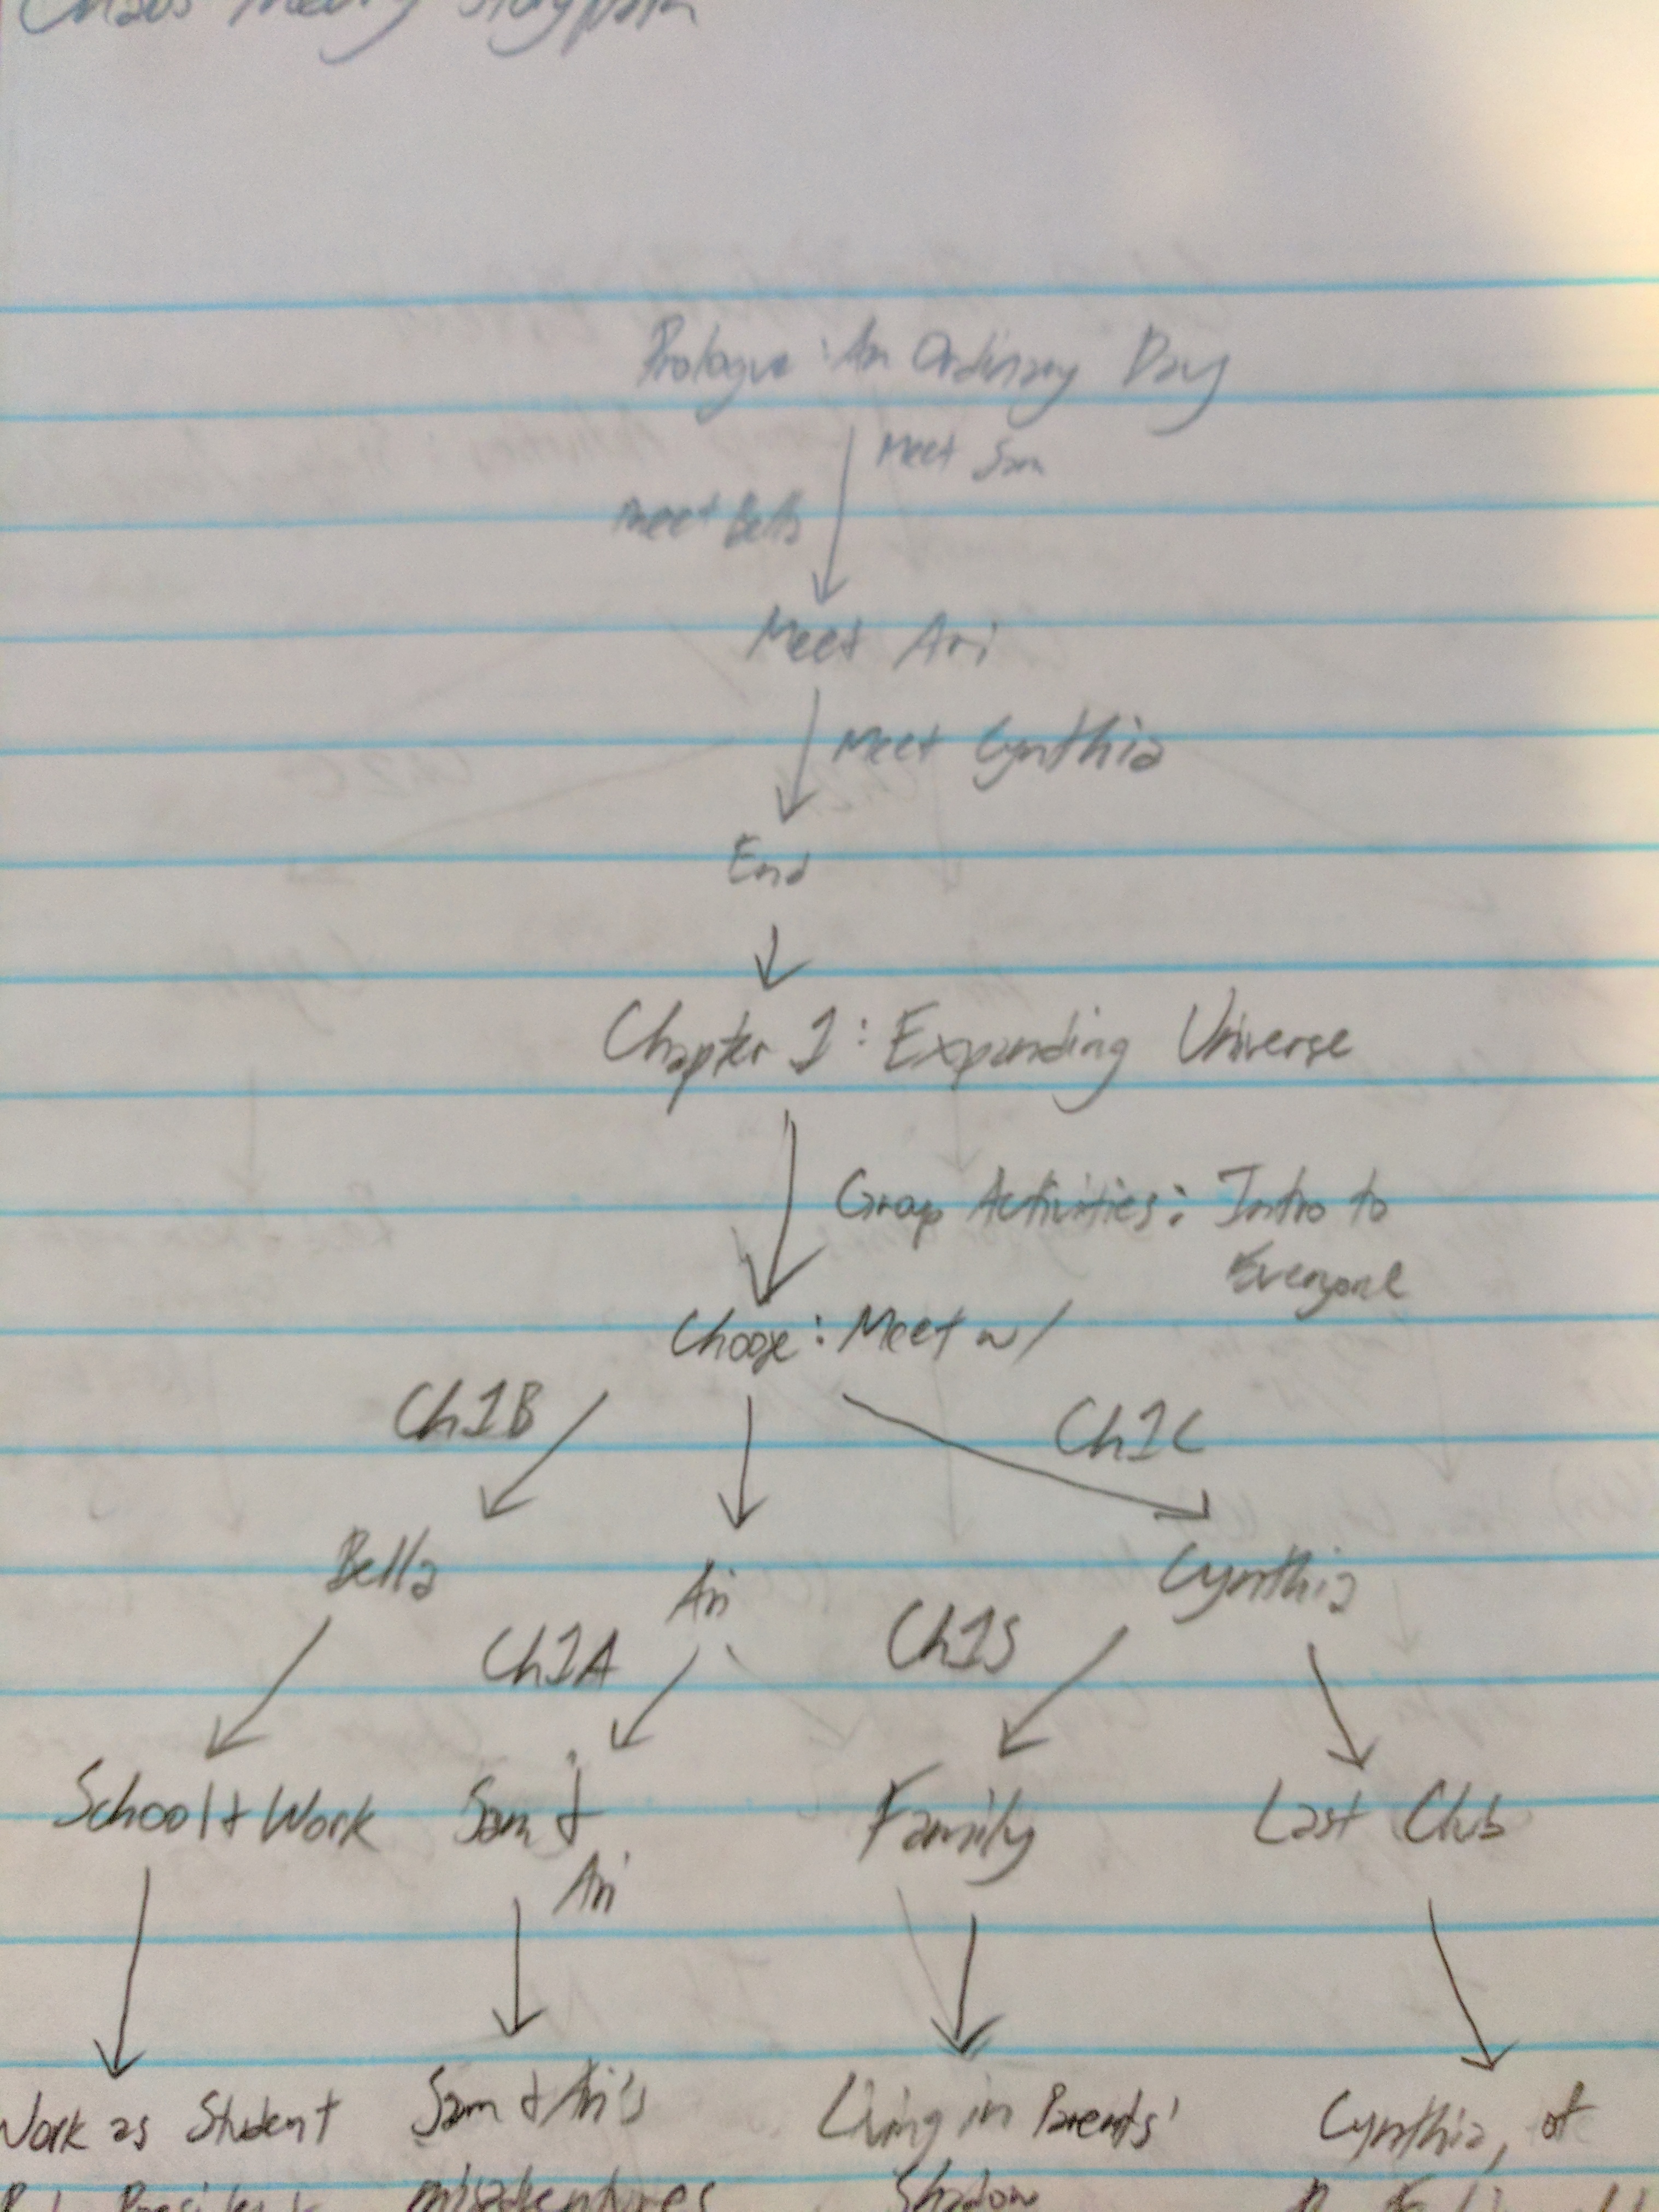 Chaos Theory Storypath
Prologue: An Ordinary Day
Meet Sam
Meet Bella
Meet Ari
Meet Cynthia
End
Chapter 1: Expanding Universe
Group Activities: Intro to
Everyone
Choose: Meet w/
Ch1B
Ch1C
Bella Ari Cynthia
Ch1A Ch1S
School & Work Sam & Family Last Club
Ari
Work as Student Sam & Ari's Living in Parents' Cynthia, of
President misadventures Shadow